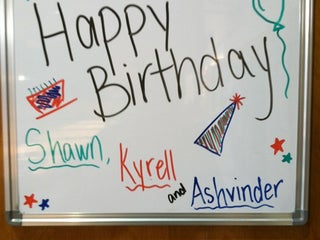 Happy
Birthday
Shawn,
Kyrell
and Ashvinder